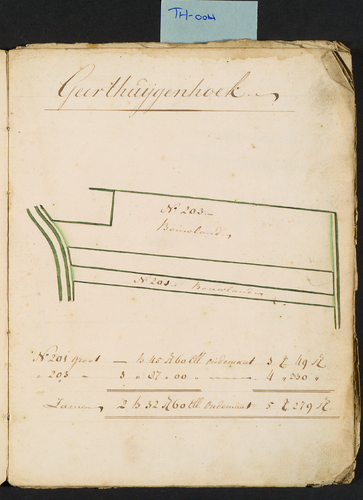 TH-004
Geerthuijgenhoek
N 203
Bouwland
N 201 Bouwland
N 201 groot — b 45 R 60 Ell. oudemaat 3 ℓ 49 R
203 — 3 " 87 " 00 — 4 " 230 "
Zamen, 2 b 32 R 60 Ell. oudemaat 5 ℓ 279 R